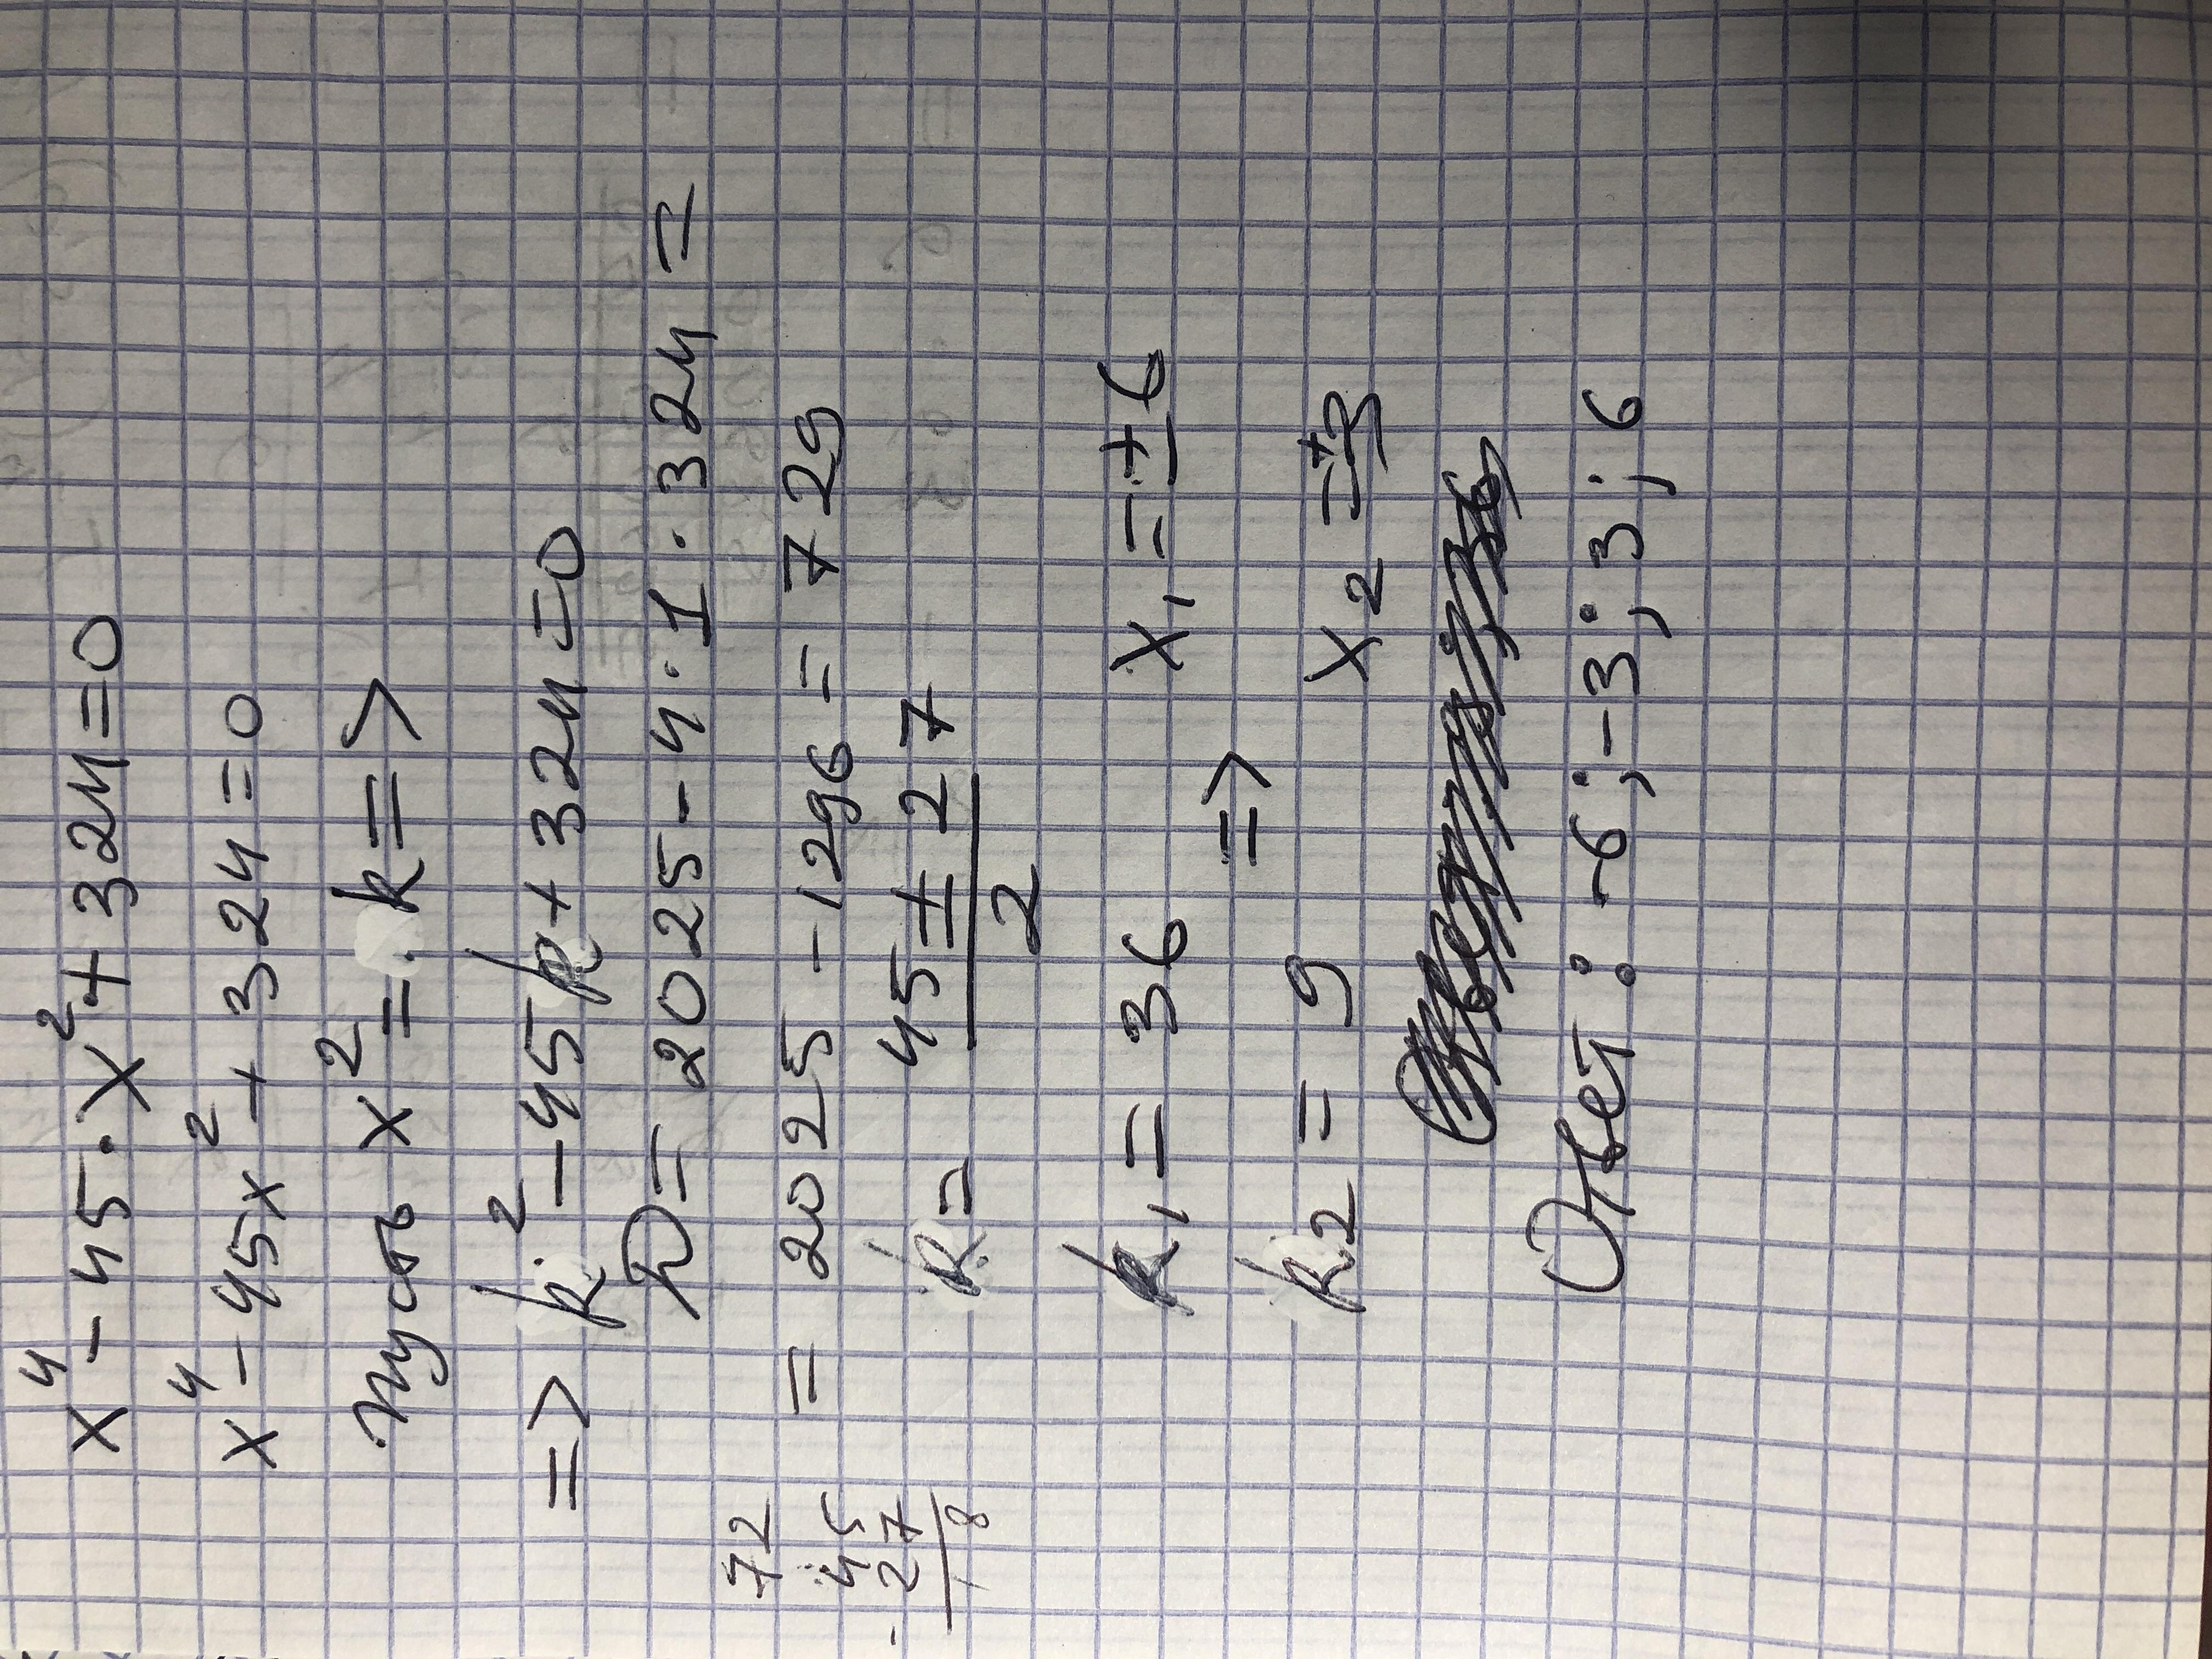 x⁴ - 45 · x² + 324 = 0
x⁴ - 45x² + 324 = 0
Пусть x² = k =>
=> k² - 45k + 324 = 0
D = 2025 - 4 · 1 · 324 =
= 2025 - 1296 = 729
k = (45 ± 27) / 2
k₁ = 36 => x₁ = ±6
k₂ = 9 x₂ = ±3
Ответ: -6; -3; 3; 6
72
45
- 27
18